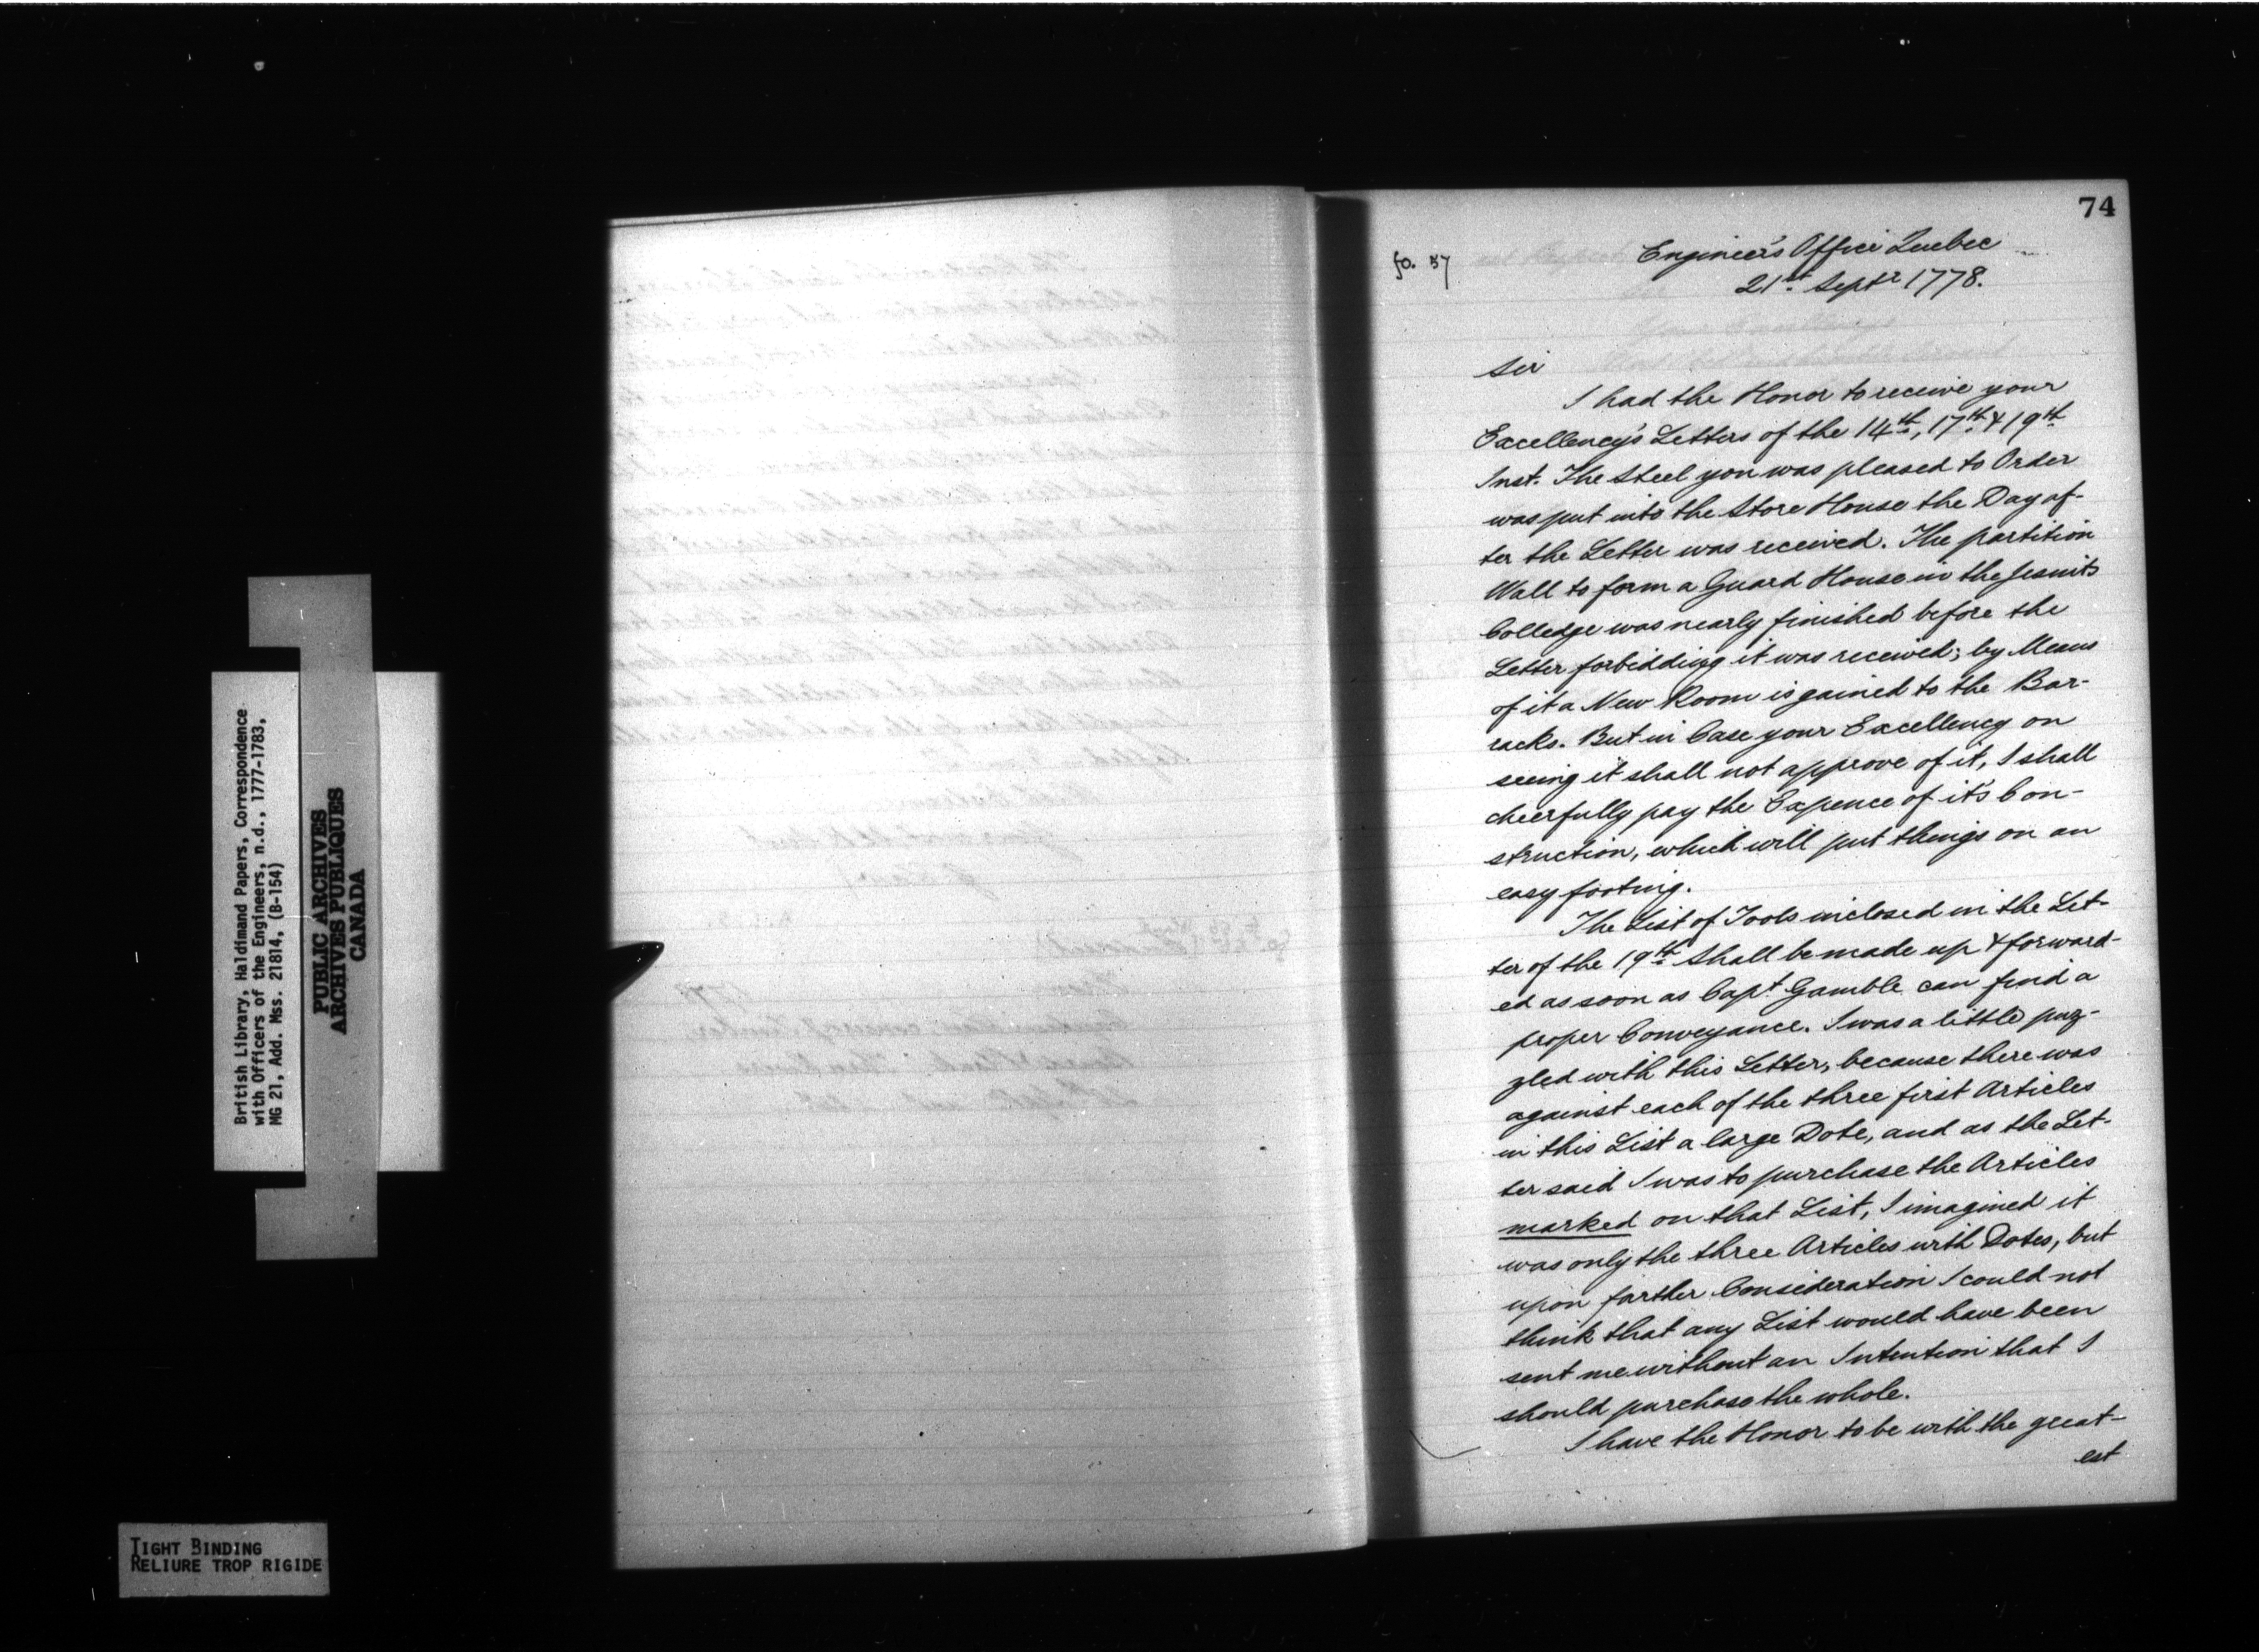 British Library, Haldimand Papers, Correspondence
with Officers of the Engineers, n.d., 1777-1783,
MG 21, Add. Mss. 21814, (B-154)
PUBLIC ARCHIVES
ARCHIVES PUBLIQUES
CANADA
TIGHT BINDING
RELIURE TROP RIGIDE
74
fo. 57
Engineer's Office Quebec
21st. Septr 1778.
Sir
I had the Honor to receive your
Excellency's Letters of the 14th, 17th & 19th
Inst. The Steel you was pleased to Order
was put into the Store House the Day af-
ter the Letter was received. The partition
Wall to form a Guard House in the Jesuits
Colledge was nearly finished before the
Letter forbidding it was received; by Means
of it a New Room is gained to the Bar-
racks. But in Case your Excellency on
seeing it shall not approve of it, I shall
cheerfully pay the Expence of it's Con-
struction, which will put things on an
easy footing.
The List of Tools inclosed in the Let-
ter of the 19th shall be made up & forward-
ed as soon as Capt. Gamble can find a
proper Conveyance. I was a little puz-
zled with this Letter, because there was
against each of the three first Articles
in this List a large Dote, and as the Let-
ter said I was to purchase the Articles
marked on that List, I imagined it
was only the three Articles with Dotes, but
upon farther Consideration I could not
think that any List would have been
sent me without an Intention that I
should purchase the whole.
I have the Honor to be with the great-
est